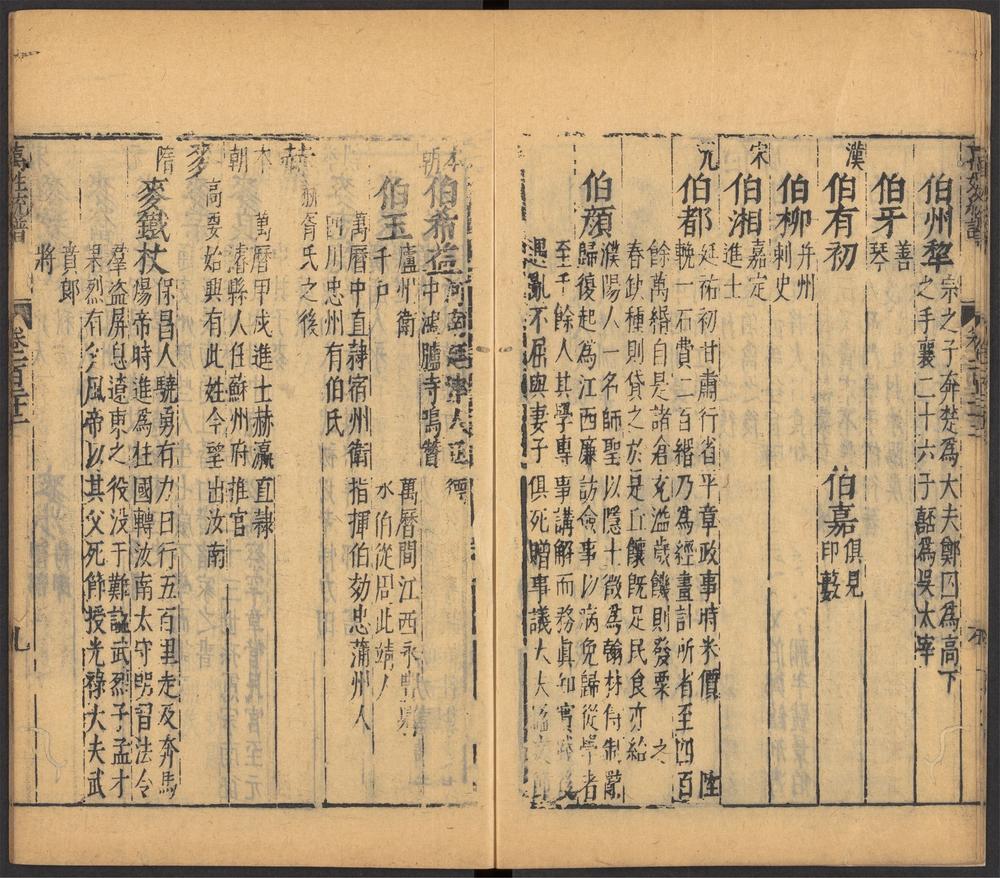 伯州犂 宗之子奔楚爲大夫鄭囚爲高下
之手襄二十六子嚭爲吳太宰
伯牙 善
琴
漢
伯有初 伯嘉 俱見
印藪
伯柳 并州
刺史
宋
伯湘 嘉定
進士
元
伯都 延祐初甘肅行省平章政事時米價 陡
輓一石費二百緡乃爲經畫計所省至四百
餘萬緡自是諸倉充溢歲饑則發粟 之
春缺種則貸之於是丘饟旣足民食亦給
伯顔 濮陽人一名師聖以隱士徵爲翰林待制
歸復起爲江西廉訪僉事以病免歸從學者
至千餘人其學專事講解而務眞知實踐後
遇亂不屈與妻子俱死贈事議大夫謚文節
本
朝
伯希益 河南延津人通 德
中鴻臚寺鳴贊
萬曆間江西永豐縣
水伯從周此靖人
伯玉 廬州衛
千戶
萬曆中直隷宿州衛指揮伯効忠蒲州人
四川忠州有伯氏
赫
赫胥氏之後
本
朝
萬曆甲戌進士赫瀛直隷
濬縣人任蘇州府推官
麥
高要始興有此姓今望出汝南
隋
麥鐵杖 保昌人驍勇有力日行五百里走及奔馬
煬帝時進爲柱國轉汝南太守明習法令
羣盗屏息遼東之役没于難諡武烈子孟才
果烈有父風帝以其父死節授光祿大夫武
賁郎
將
萬姓統譜
卷之百二十二
九